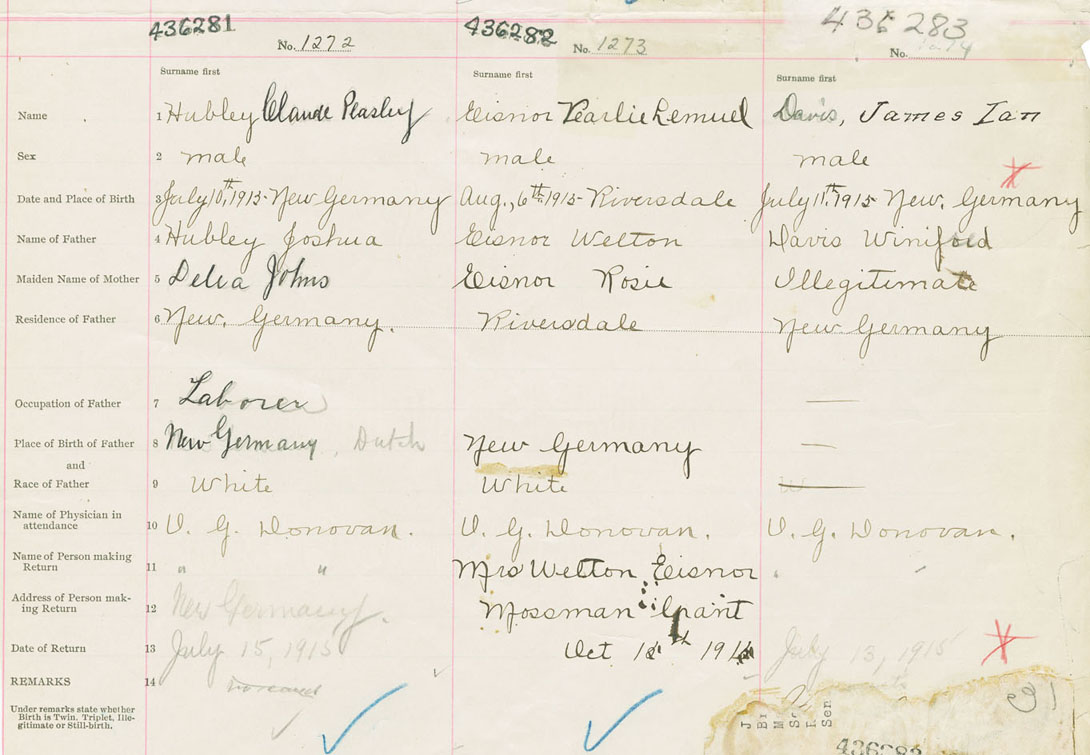 436281 436282 436283
No. 1272 No. 1273 No. 1274
Surname first Surname first Surname first
Name 1 Hubley Claude Peasley Eisnor Vearlie Lemuel Davis, James Ian
Sex 2 male male male
Date and Place of Birth 3 July 10th, 1915 - New Germany Aug., 6th 1915 - Riversdale July 11th, 1915 New. Germany
Name of Father 4 Hubley Joshua Eisnor Welton Davis Winifred
Maiden Name of Mother 5 Delia Johns Eisnor Rosie Illegitimate
Residence of Father 6 New. Germany. Riversdale New Germany
Occupation of Father 7 Laborer —
Place of Birth of Father 8 New Germany, Dutch New Germany —
and
Race of Father 9 White White
Name of Physician in
attendance 10 V. G. Donovan. V. G. Donovan. V. G. Donovan.
Name of Person making
Return 11 " " Mrs Welton Eisnor "
Address of Person mak-
ing Return 12 New Germany. Mossman Grant
Date of Return 13 July 15, 1915 Oct 191 July 13, 1915
REMARKS 14
Under remarks state whether
Birth is Twin, Triplet, Ille-
gitimate or Still-birth.
J
Br
M
S
E
Sen
436283